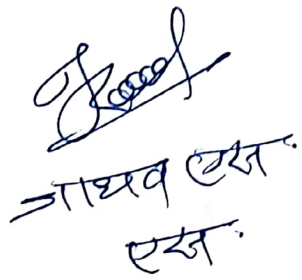 जाधव एस.
एस.